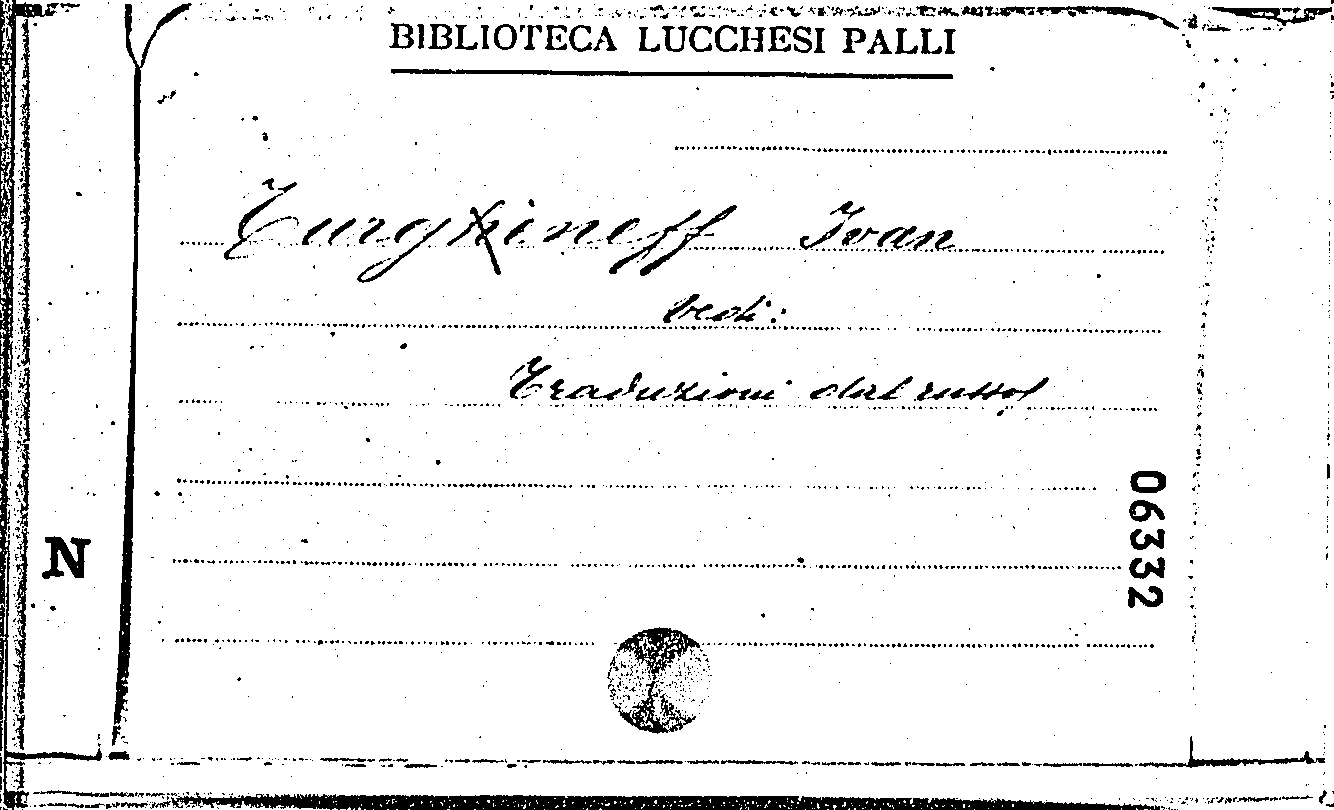 BIBLIOTECA LUCCHESI PALLI
Turghineff Ivan
vedi:
Traduzioni dal russo
06332
N